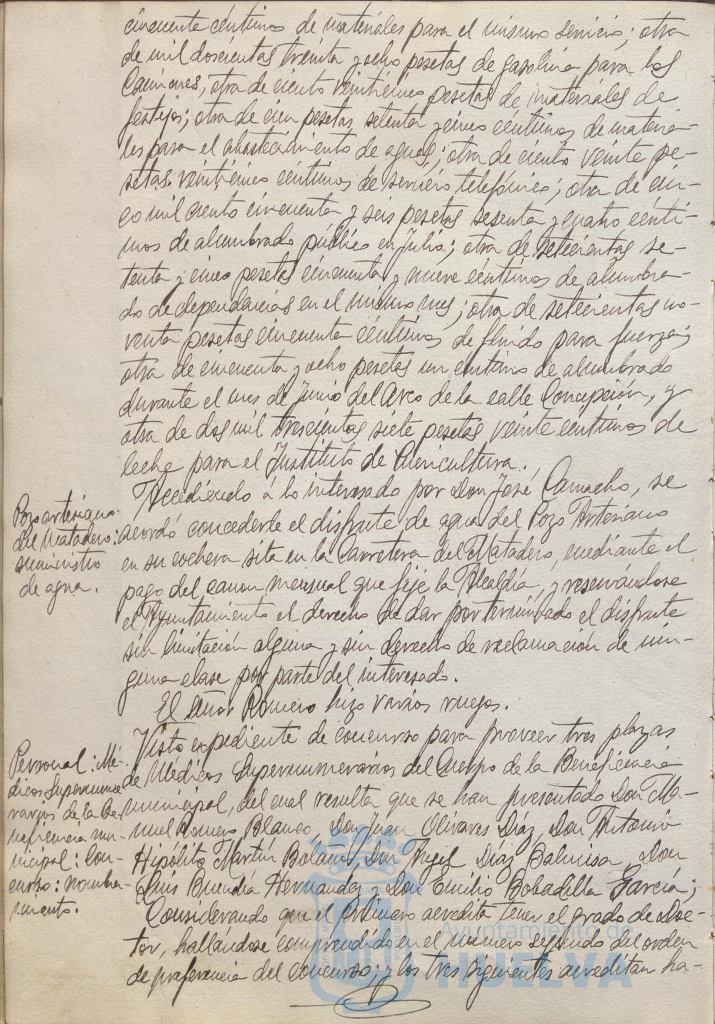 cincuenta céntimos de materiales para el mismo servicio; otra
de mil doscientas treinta y ocho pesetas de gasolina para los
Camiones; otra de ciento veinticinco pesetas de materiales de
festejos; otra de cien pesetas setenta y cinco céntimos de materia-
les para el abastecimiento de aguas; otra de ciento veinte pe-
setas veinticinco céntimos de servicio telefónico; otra de cin-
co mil ciento cincuenta y seis pesetas sesenta y cuatro cénti-
mos de alumbrado público en Julio; otra de setecientas se-
tenta y cinco pesetas cincuenta y nueve céntimos de alumbra-
do de dependencias en el mismo mes; otra de setecientas no-
venta pesetas cincuenta céntimos de fluido para fuerza;
otra de cincuenta y ocho pesetas un céntimo de alumbrado
durante el mes de Junio del Arco de la calle Concepción, y
otra de dos mil trescientas siete pesetas veinte céntimos de
leche para el Instituto de Puericultura.
Pozo artesiano
del Matadero:
suministro
de agua.
Accediendo á lo interesado por Don José Camacho, se
acordó concederle el disfrute de agua del Pozo Artesiano
en su cochera sita en la Carretera del Matadero, mediante el
pago del canon mensual que fije la Alcaldía, y reservándose
el Ayuntamiento el derecho de dar por terminado el disfrute
sin limitación alguna y sin derecho de reclamación de nin-
guna clase por parte del interesado.
El señor Romero hizo varios ruegos.
Personal: Mé-
dicos Supernume-
rarios de la Be-
neficencia mu-
nicipal: Con-
curso: nombra-
miento.
Visto expediente de concurso para proveer tres plazas
de Médicos Supernumerarios del Cuerpo de la Beneficencia
municipal, del cual resulta que se han presentado Don Ma-
nuel Romero Blanco, Don Juan Olivares Díaz, Don Antonio
Hipólito Martín Bolaños, Don Angel Díaz Don
Luis Buendía Hernandez y Don Emilio Bobadilla García;
Considerando que el primero acredita tener el grado de Doc-
tor, hallándose comprendido en el número segundo del orden
de preferencia del concurso; y los tres siguientes acreditan ha-
Ayuntamiento de
HUELVA